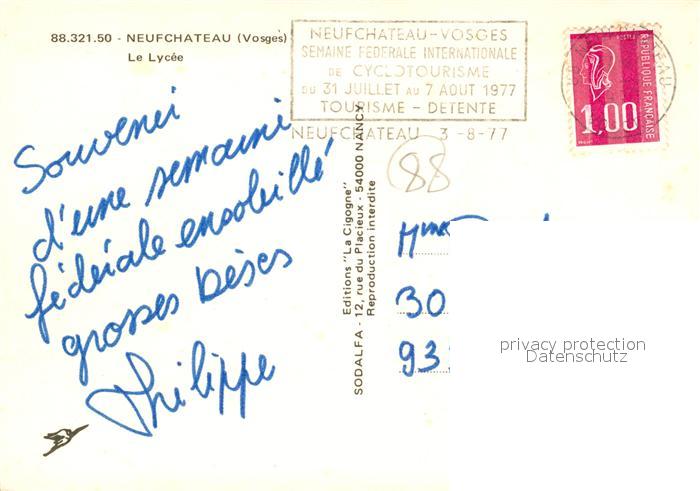 88.321.50 - NEUFCHATEAU (Vosges)
Le Lycée
NEUFCHATEAU-VOSGES
SEMAINE FEDERALE INTERNATIONALE
DE CYCLOTOURISME
DU 31 JUILLET AU 7 AOUT 1977
TOURISME - DETENTE
NEUFCHATEAU 3 -8-77
POSTES
REPUBLIQUE FRANÇAISE
1,00
88
Souvenir
d'une semaine
fédérale ensoleillé
grosses bises
Philippe
Editions "La Cigogne"
SODALFA - 12, rue du Placieux - 54000 NANCY
Reproduction interdite
Mme
30
93
privacy protection
Datenschutz